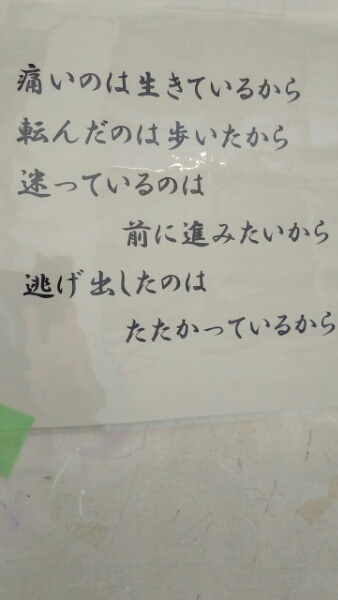 痛いのは生きているから
転んだのは歩いたから
迷っているのは
前に進みたいから
逃げ出したのは
たたかっているから